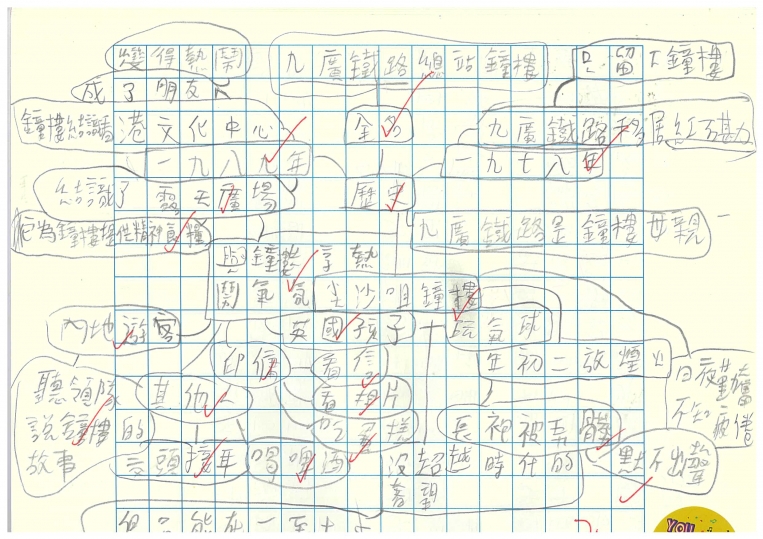 變得熱鬧 九廣鐵路總站鐘樓 只留下鐘樓
成了朋友
鐘樓結識 港文化中心 全名 九廣鐵路移居紅磡
一九八九年 一九七八年
結識了 露天廣場 歷史
為鐘樓提供精神食糧 九廣鐵路是鐘樓母親
與鐘樓享熱
鬧氣氛 尖沙咀鐘樓
內地遊客 英國孩子 玩氣球
印傭 看信 年初二放煙火
聽領隊 其他人 看相片 日夜
說鐘樓的 吃蛋糕 長裙被弄髒 不知疲倦
故事 交頭接耳 喝啤酒 沒超越時代的 默不出聲
奢望
但只能在一至十
YOU